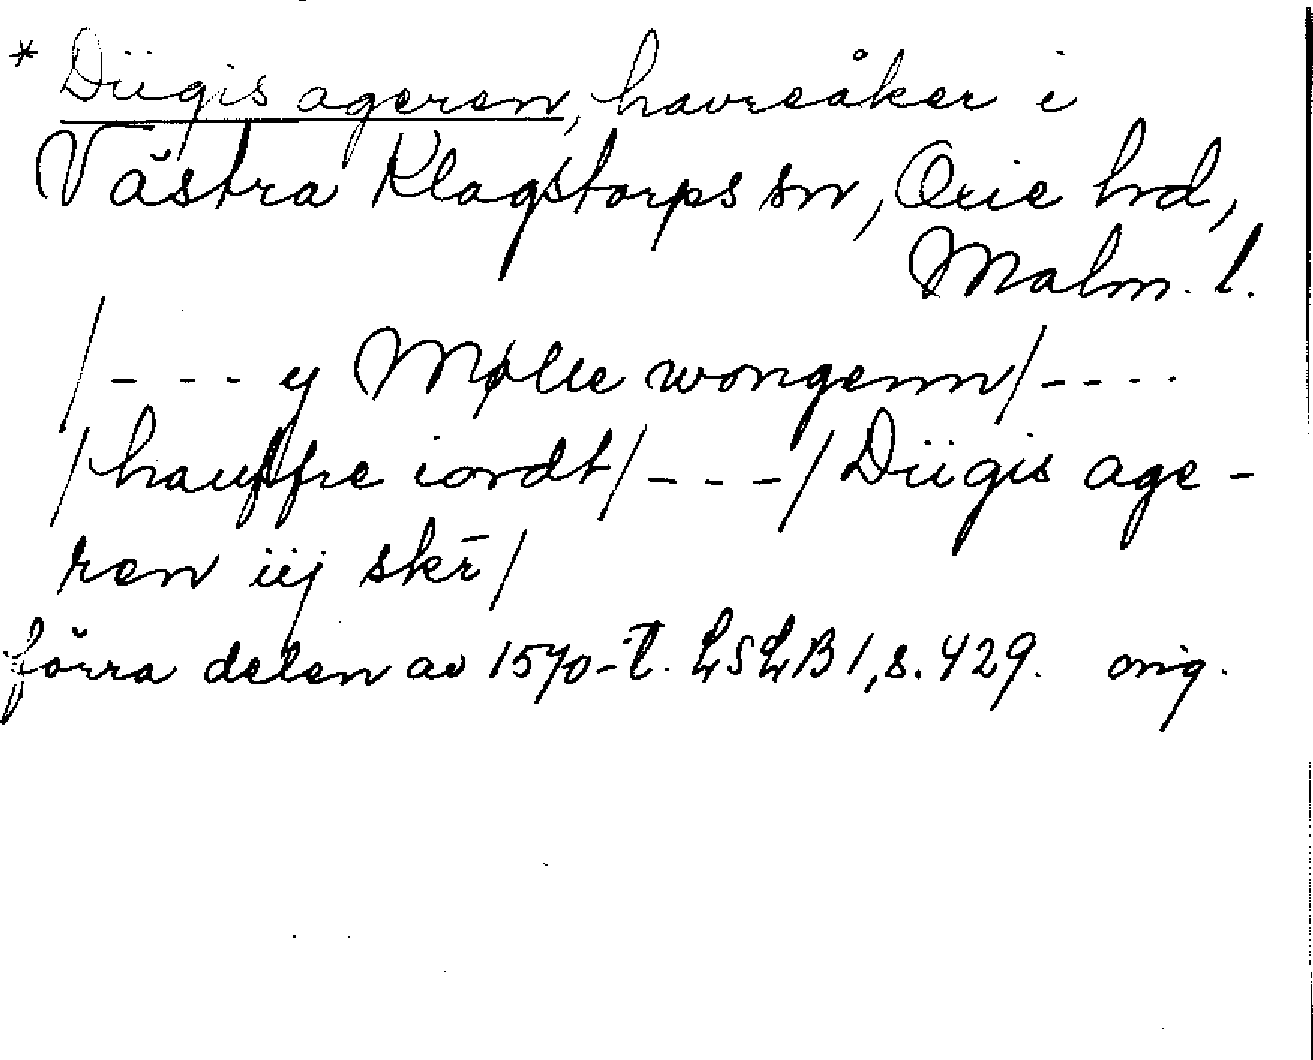 * Diigis ageren, havreåker i
Västra Klagstorps sn, Oxie hd,
Malm. l.
/- - - y Mølle wongenn/- - - -
/hauffre iordt/- - -/Diigis age-
ren iij skr̄/
förra delen av 1570-t. LSLB 1, s. 429. orig.